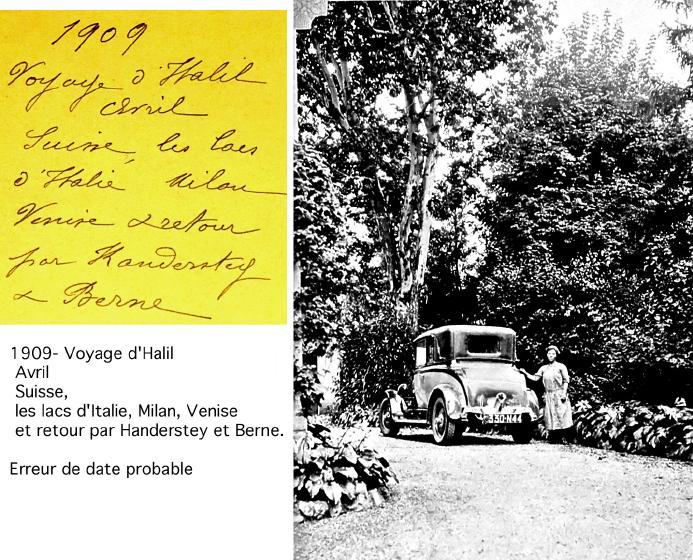 1909
Voyage d'Halil
Avril
Suisse, les lacs
d'Italie Milan
Venise & retour
par Kandersteg
& Berne
1909- Voyage d'Halil
Avril
Suisse,
les lacs d'Italie, Milan, Venise
et retour par Handerstey et Berne.
Erreur de date probable